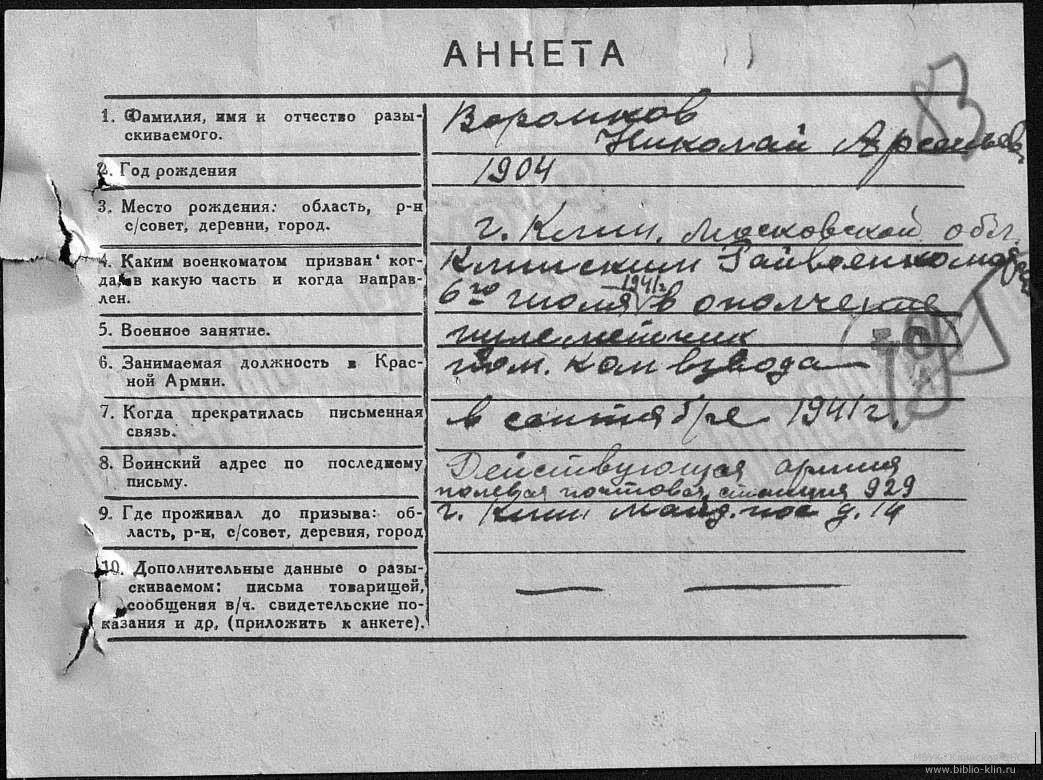 АНКЕТА
83
1. Фамилия, имя и отчество разы-
скиваемого.
Воронков
Николай Арсеньев
2. Год рождения
1904
3. Место рождения: область, р-н
с/совет, деревни, город.
г. Клин, Московской обл.
4. Каким военкоматом призван ког-
да, в какую часть и когда направ-
лен.
Клинским Райвоенкомат
6го июля 1941г в ополчение
5. Военное занятие.
пулеметчик
6. Занимаемая должность в Крас-
ной Армии.
пом. ком взвода
7. Когда прекратилась письменная
связь.
в сентябре 1941 г.
8. Воинский адрес по последнему
письму.
Действующая армия
полевая почтовая станция 929
9. Где проживал до призыва: об-
ласть, р-н, с/совет, деревия, город
г. Клин д. 14
10. Дополнительные данные о разы-
скиваемом: письма товарищей,
сообщения в/ч. свидетельские по-
казания и др, (приложить к анкете).
www.biblio-klin.ru